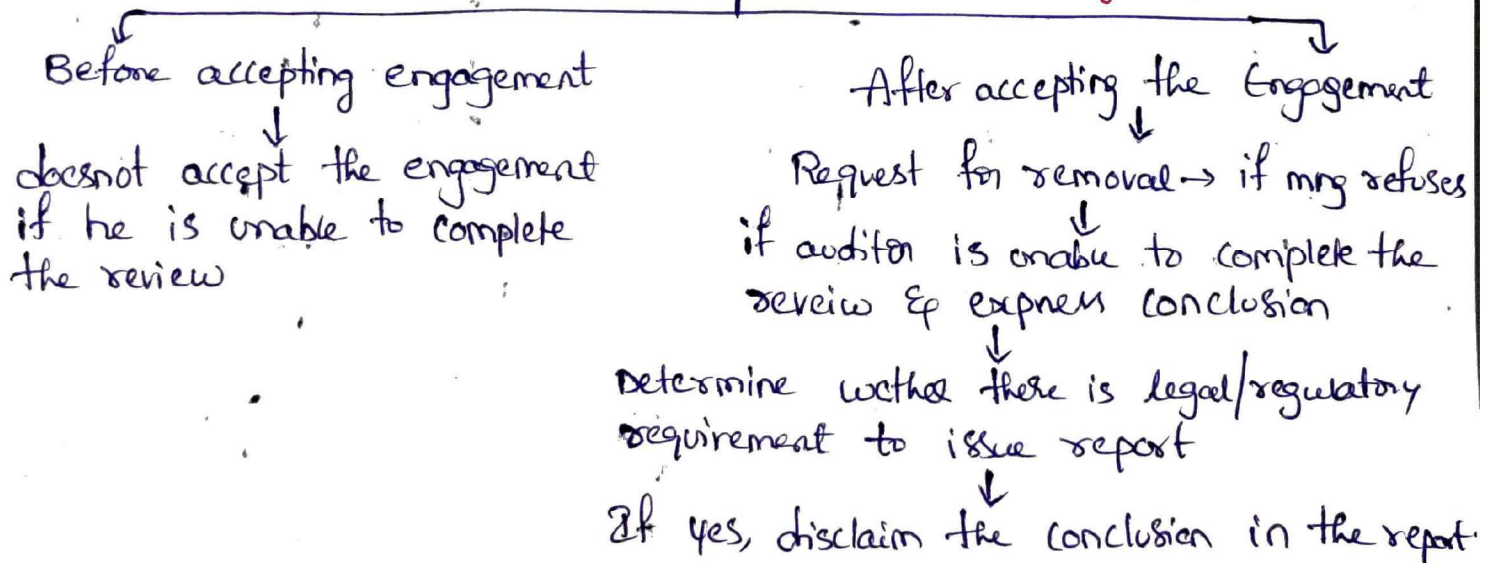 Before accepting engagement
↓
doesnot accept the engagement
if he is unable to complete
the review
After accepting the Engagement
↓
Request for removal → if mng refuses
↓
if auditor is unable to complete the
reveiw & express conclusion
↓
Determine wether there is legal/regulatory
requirement to issue report
↓
If yes, disclaim the conclusion in the report.